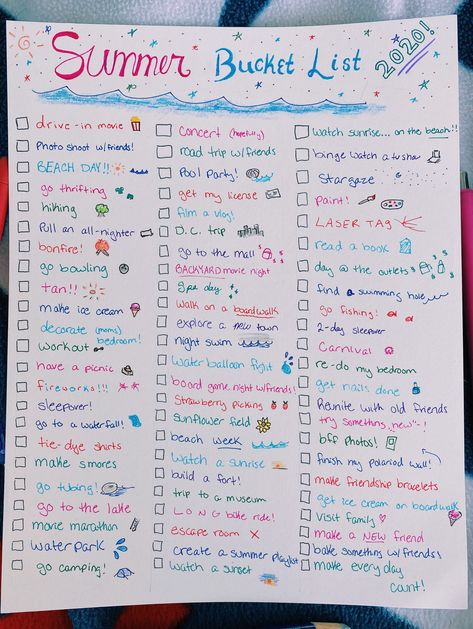 Summer Bucket List 2020!
drive-in movie
Photo shoot w/friends!
BEACH DAY!!
go thrifting
hiking
Pull an all-nighter
bonfire!
go bowling
tan!!
make ice cream
decorate (moms) bedroom!
workout
have a picnic
fireworks!!!
sleepover!
go to a waterfall!
tie-dye shirts
make smores
go tubing!
go to the lake
movie marathon
waterpark
go camping!
Concert (hopefully)
road trip w/friends
Pool Party!
get my license
film a vlog!
D.C. trip
go to the mall
BACKYARD movie night
spa day
walk on a boardwalk
explore a new town
night swim
water balloon fight
board game night w/friends!
Strawberry picking
sunflower field
beach week
watch a sunrise
build a fort!
trip to a museum
LONG bike ride!
escape room
create a summer playlist
watch a sunset
watch sunrise... on the beach!!
binge watch a tv show
Stargaze
paint!
LASER TAG
read a book
day @ the outlets
find a swimming hole
go fishing!
2-day sleepover
Carnival
re-do my bedroom
get nails done
Reunite with old friends
try something "new"
bff photos!
finish my polaroid wall!
make friendship bracelets
get ice cream on boardwalk
Visit family
make a NEW friend
bake something w/friends!
make every day count!